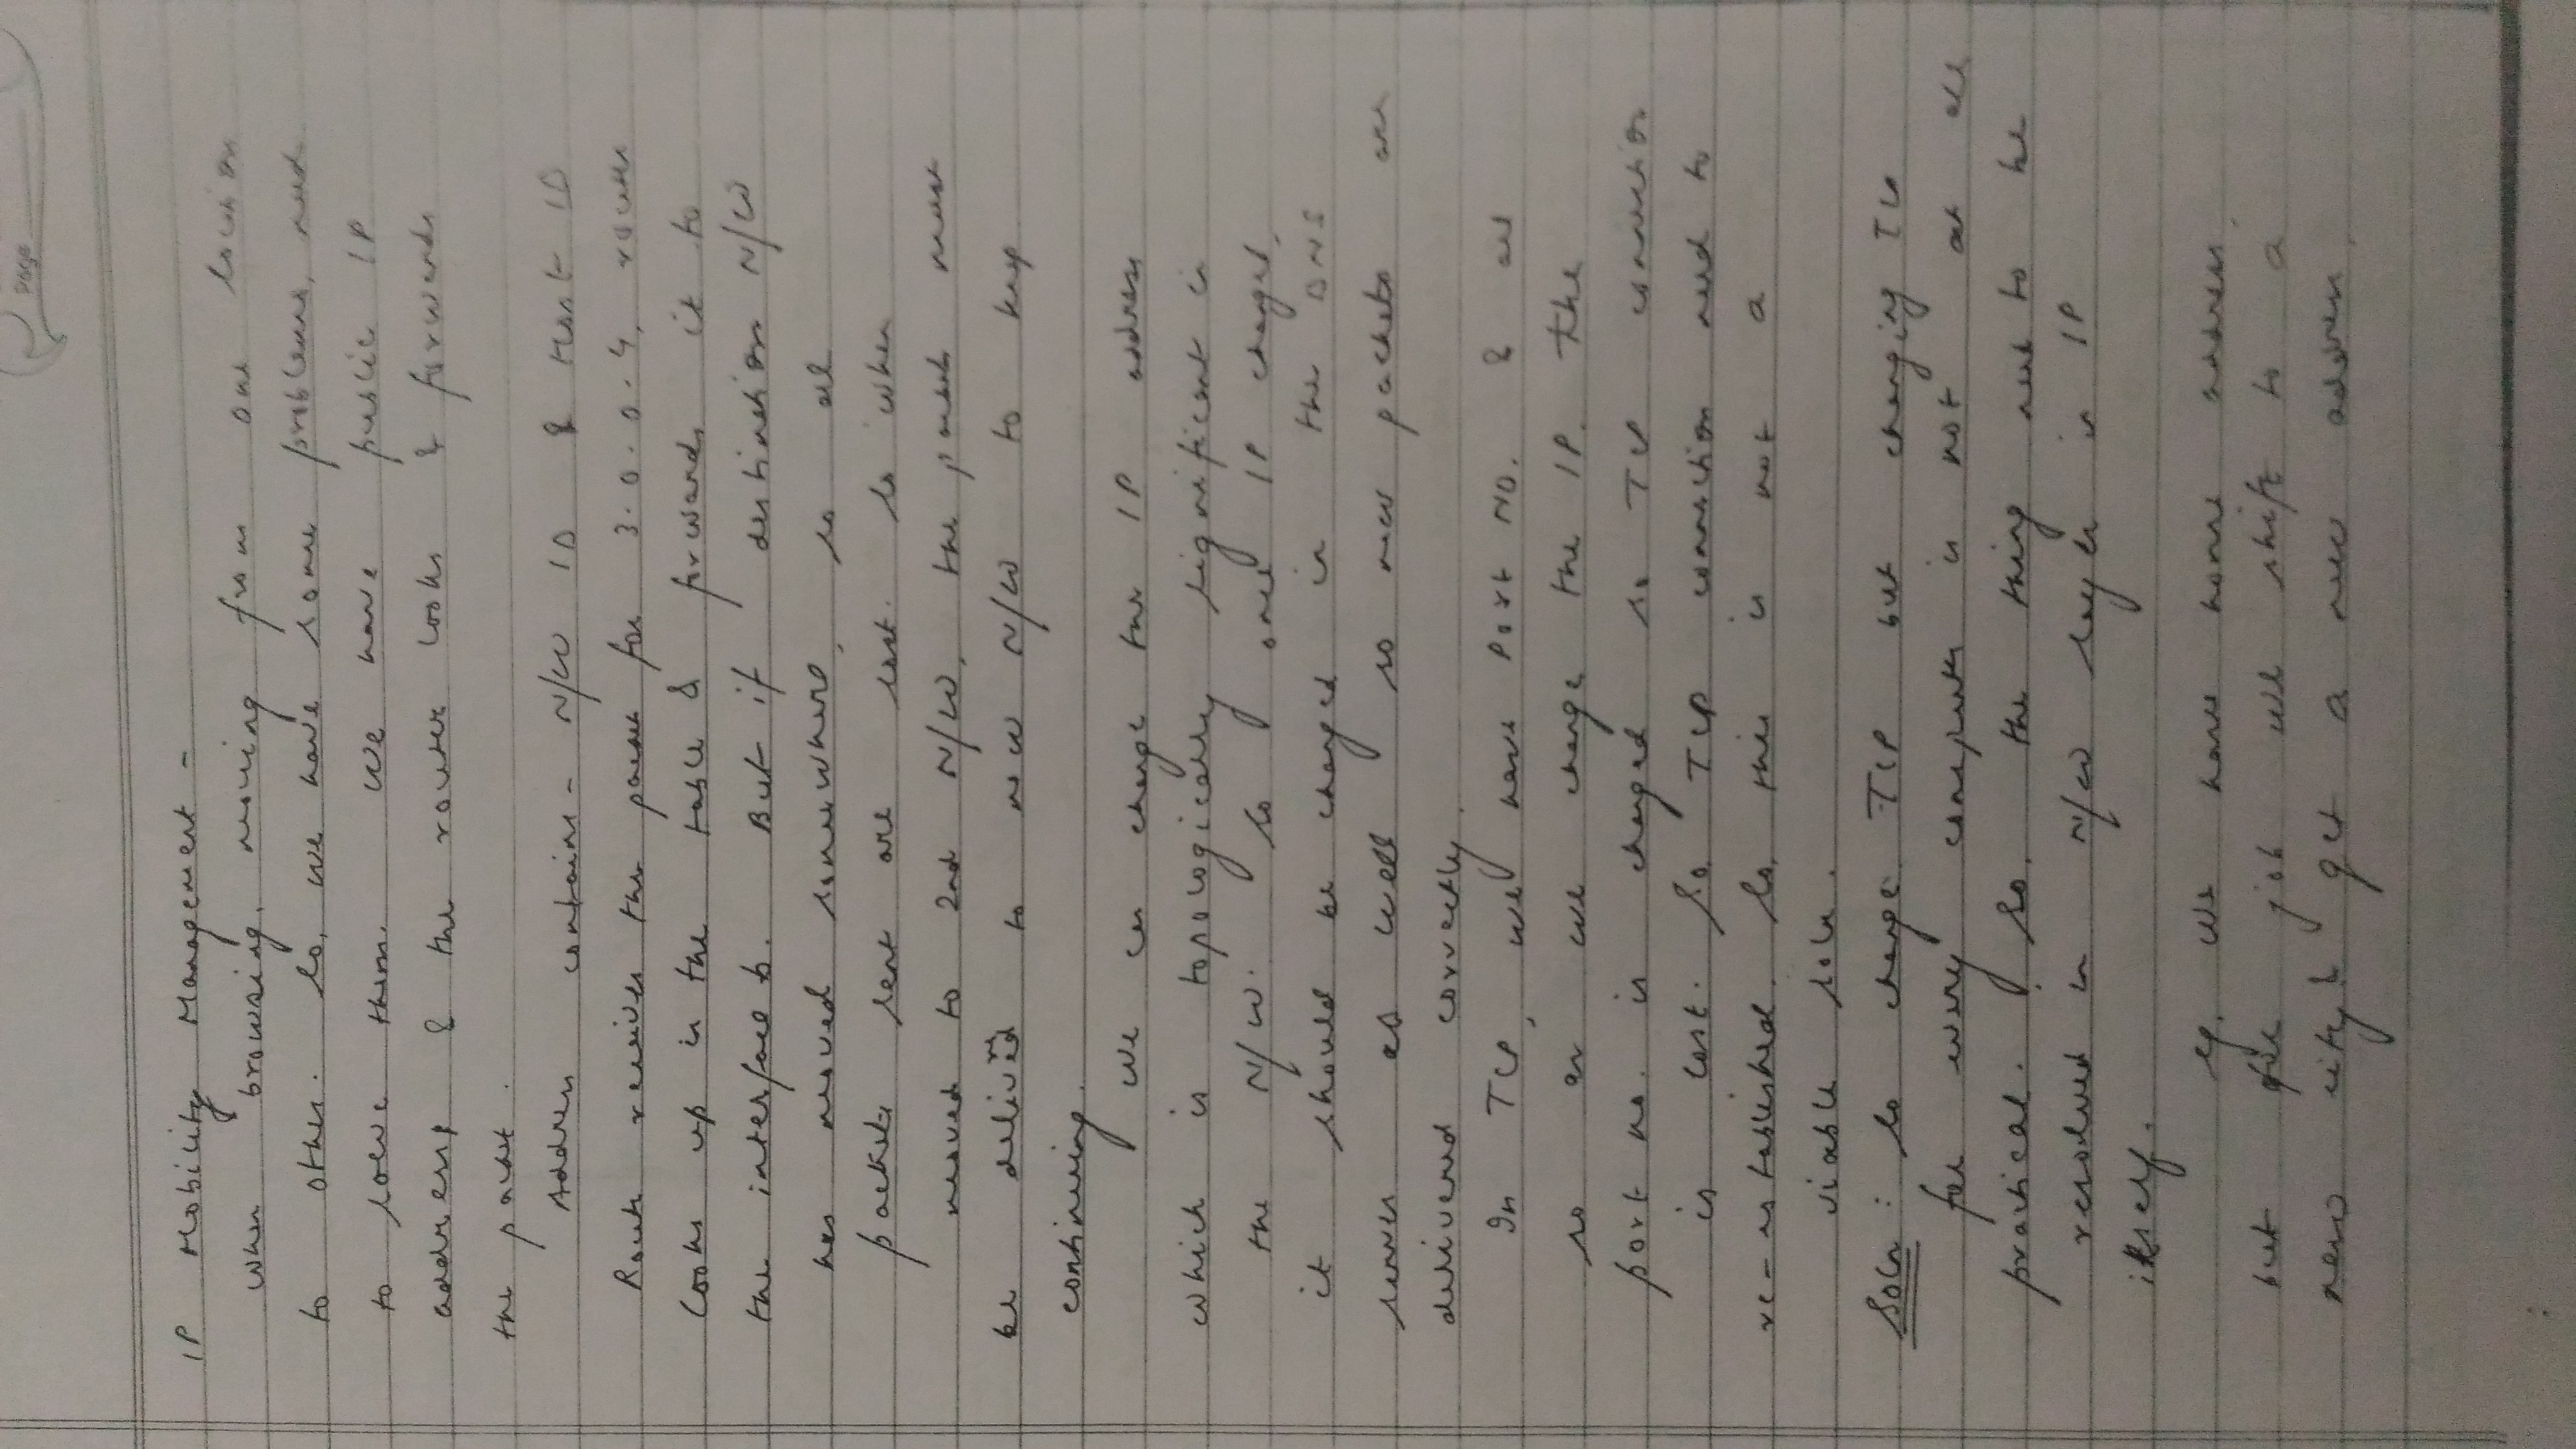 Page
IP Mobility Management -
when browsing, moving from one location
to other. So, we have some problems, need
to solve them. We have public IP
address & the router looks & forwards
the packet.
Address contains - N/W ID & Host ID
Route receives the packet for 3.0.0.4, router
looks up in the table & forwards it to
the interface b. But if destination N/W
has moved somewhere, so all
packets sent are lost. So when
moved to 2nd N/W, the packets must
be delivered to new N/W to keep
continuing.
We can change the IP address
which is topologically significant in
the N/W. So once IP changed,
it should be changed in the DNS
server as well so new packets are
delivered correctly.
In TCP, we have Port NO. & all
so as we change the IP. The
port no. is changed so TCP connection
is lost. So TCP connection need to
re-established. So, this is not a
viable soln.
Soln : to change TCP but changing TCP
for every computer is not at all
practical. So, the thing need to be
resolved in N/W layer in IP
itself.
eg. we have home address,
but for job we shift to a
new city & get a new address.